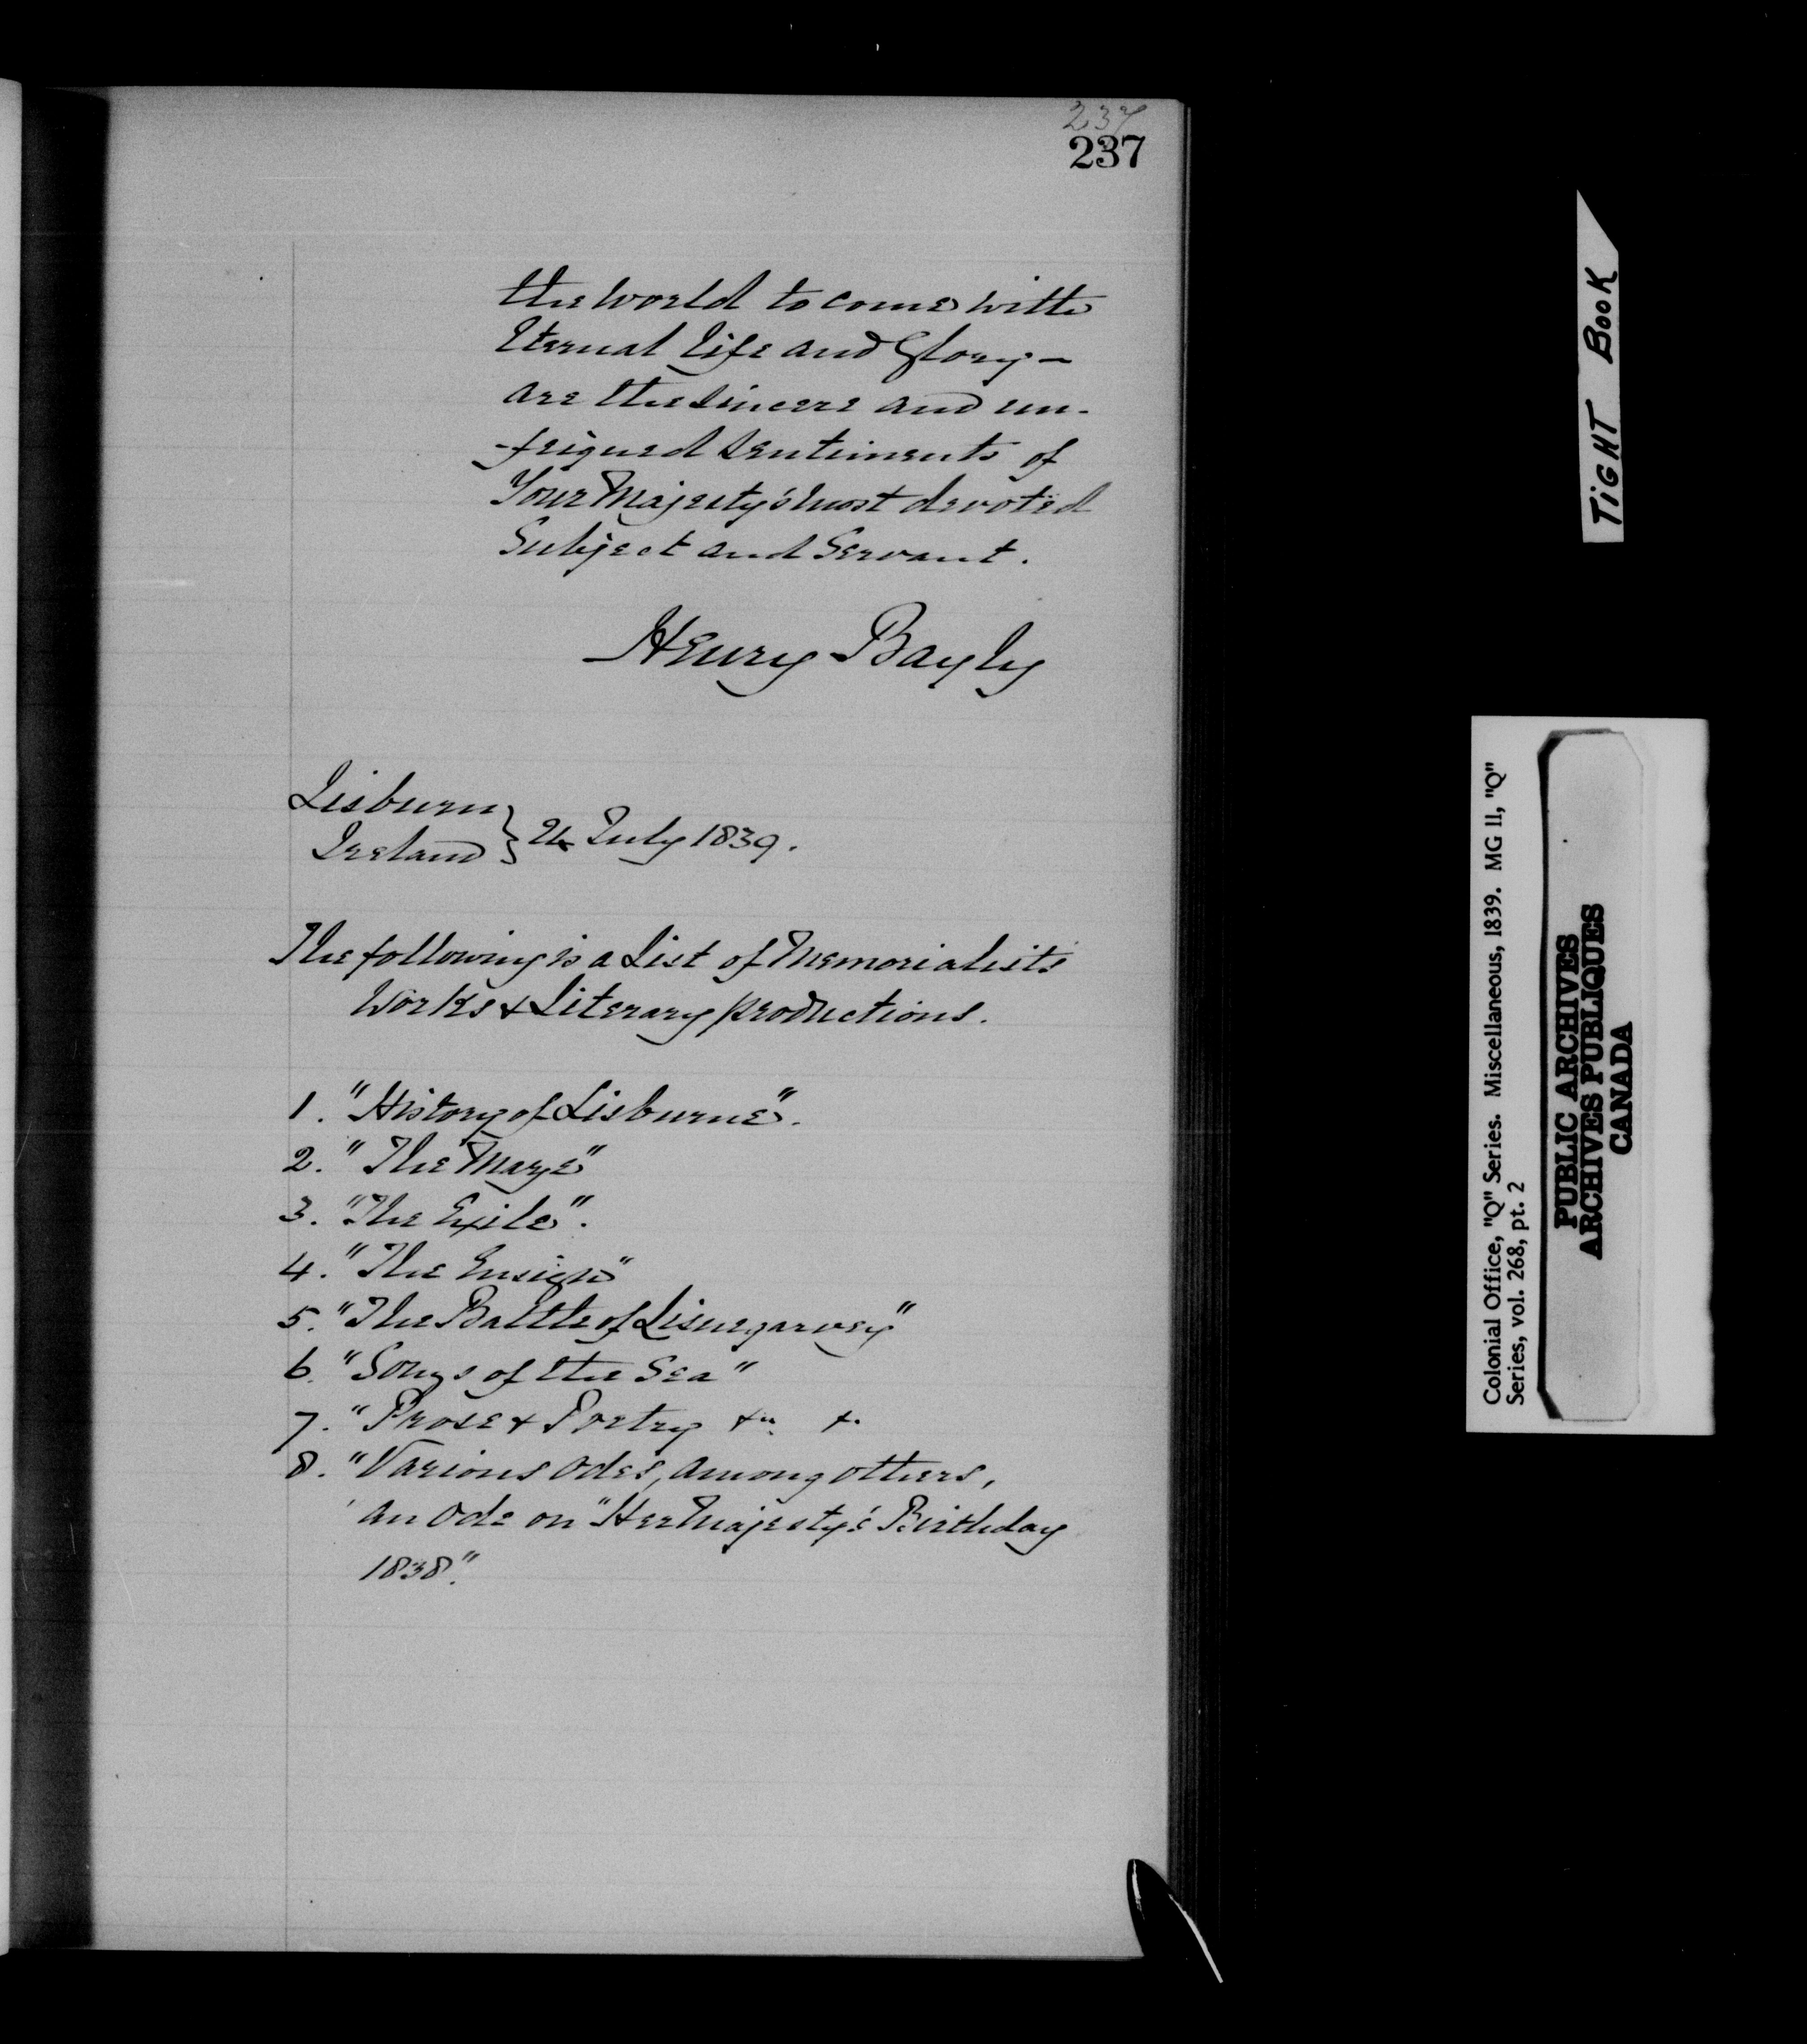 237
237
the world to come with
Eternal life and Glory —
are the sincere and un-
-feigned sentiments of
Your Majesty's most devoted
Subject and Servant.
Henry Bayly
Lisburn
Ireland } 24 July 1839.
The following is a List of Memorialists
Works & Literary productions.
1. "History of Lisburne".
2. "The Maze"
3. "The Exile".
4. "The Ensign"
5. "The Battle of Lisnegarvey"
6. "Songs of the Sea"
7. "Prose & Poetry &c. &c.
8. "Various Odes, among others,
an Ode on "Her Majesty's Birthday
1838".
TIGHT BOOK
Colonial Office, "Q" Series. Miscellaneous, 1839. MG 11, "Q"
Series, vol. 268, pt. 2
PUBLIC ARCHIVES
ARCHIVES PUBLIQUES
CANADA